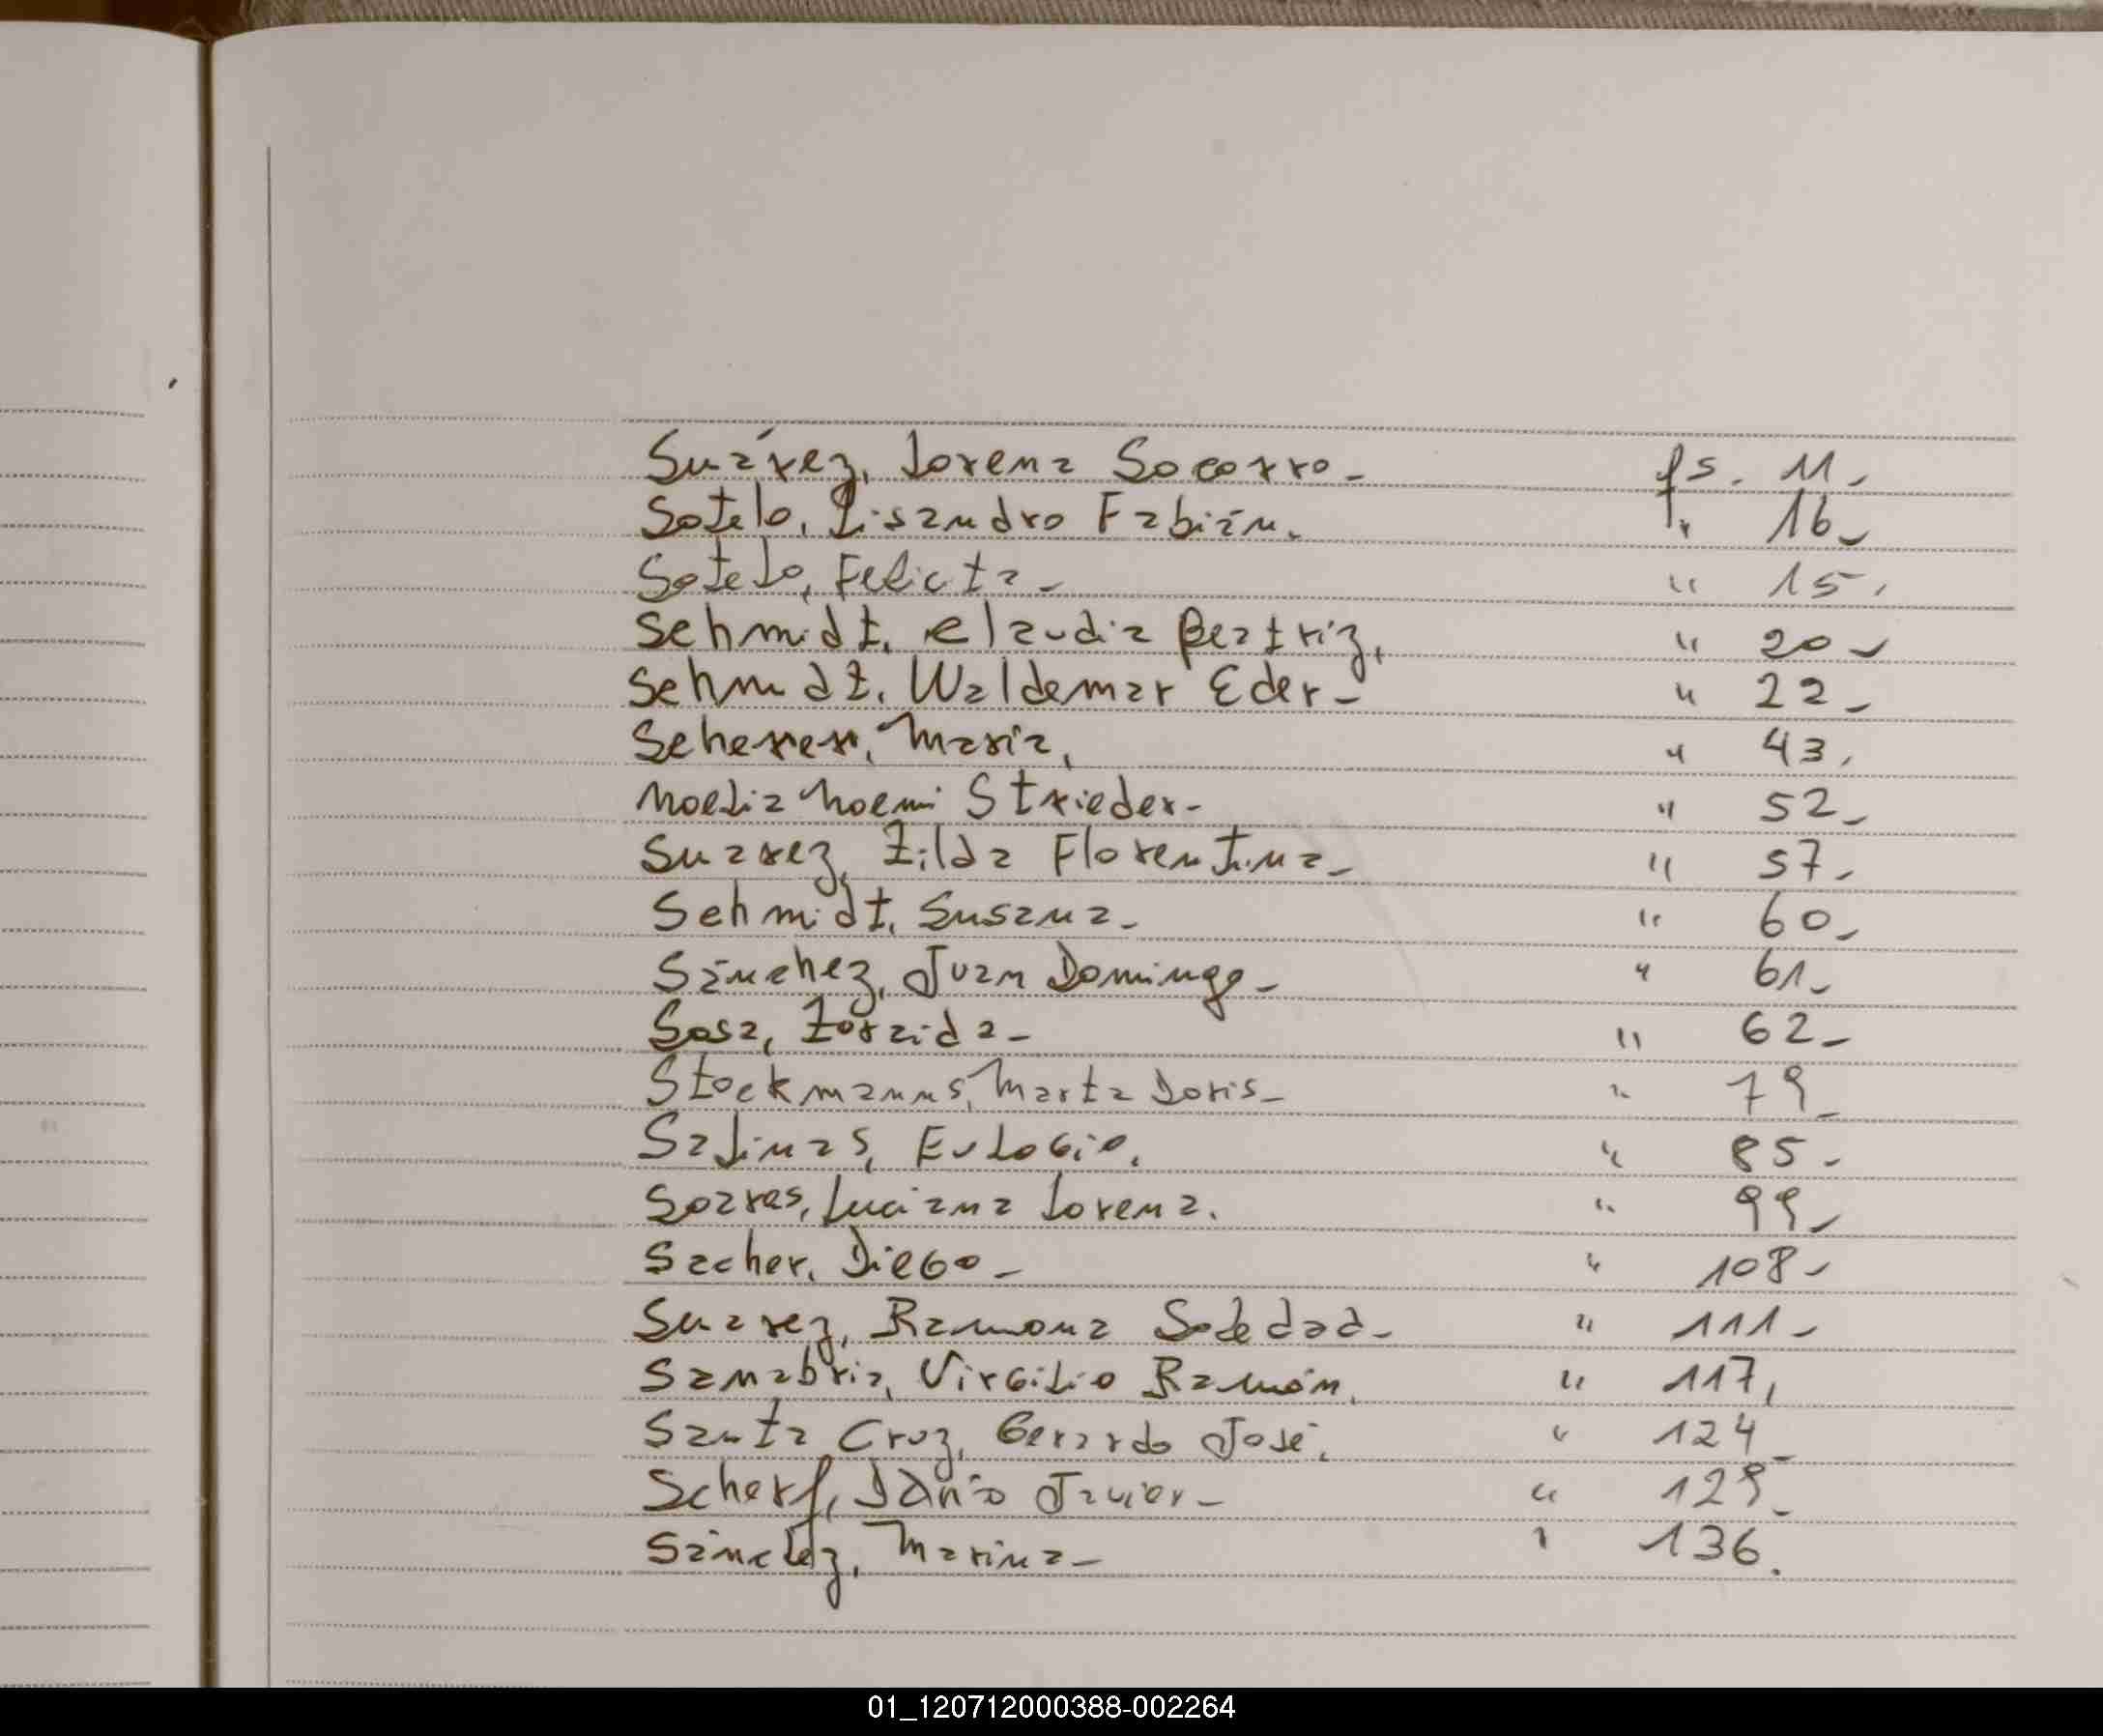 Suárez, Lorena Socorro- fs. 11-
Sotelo, Lisandro Fabián. " 16-
Sotelo, Felicta- " 15.
Schmidt, Claudia Beatriz, " 20-
Schmidt, Waldemar Eder- " 22-
Scherer, Maria, " 43,
Noelia Noemi Strieder- " 52-
Suarez, Zilda Florentina- " 57-
Schmidt, Susana- " 60-
Sánchez, Juan Domingo- " 61-
Sosa, Zoraida- " 62-
Stockmanns, Marta Doris- " 79-
Salinas, Eulogio. " 85-
Soares, Luciana Lorena. " 99-
Sacher, Diego- " 108-
Suarez, Ramona Soledad- " 111-
Sanabria, Virgilio Ramón, " 117,
Santa Cruz, Gerardo José. " 124-
Scherf, Javier- " 129-
Sánchez, Marina- " 136.
01_120712000388-002264